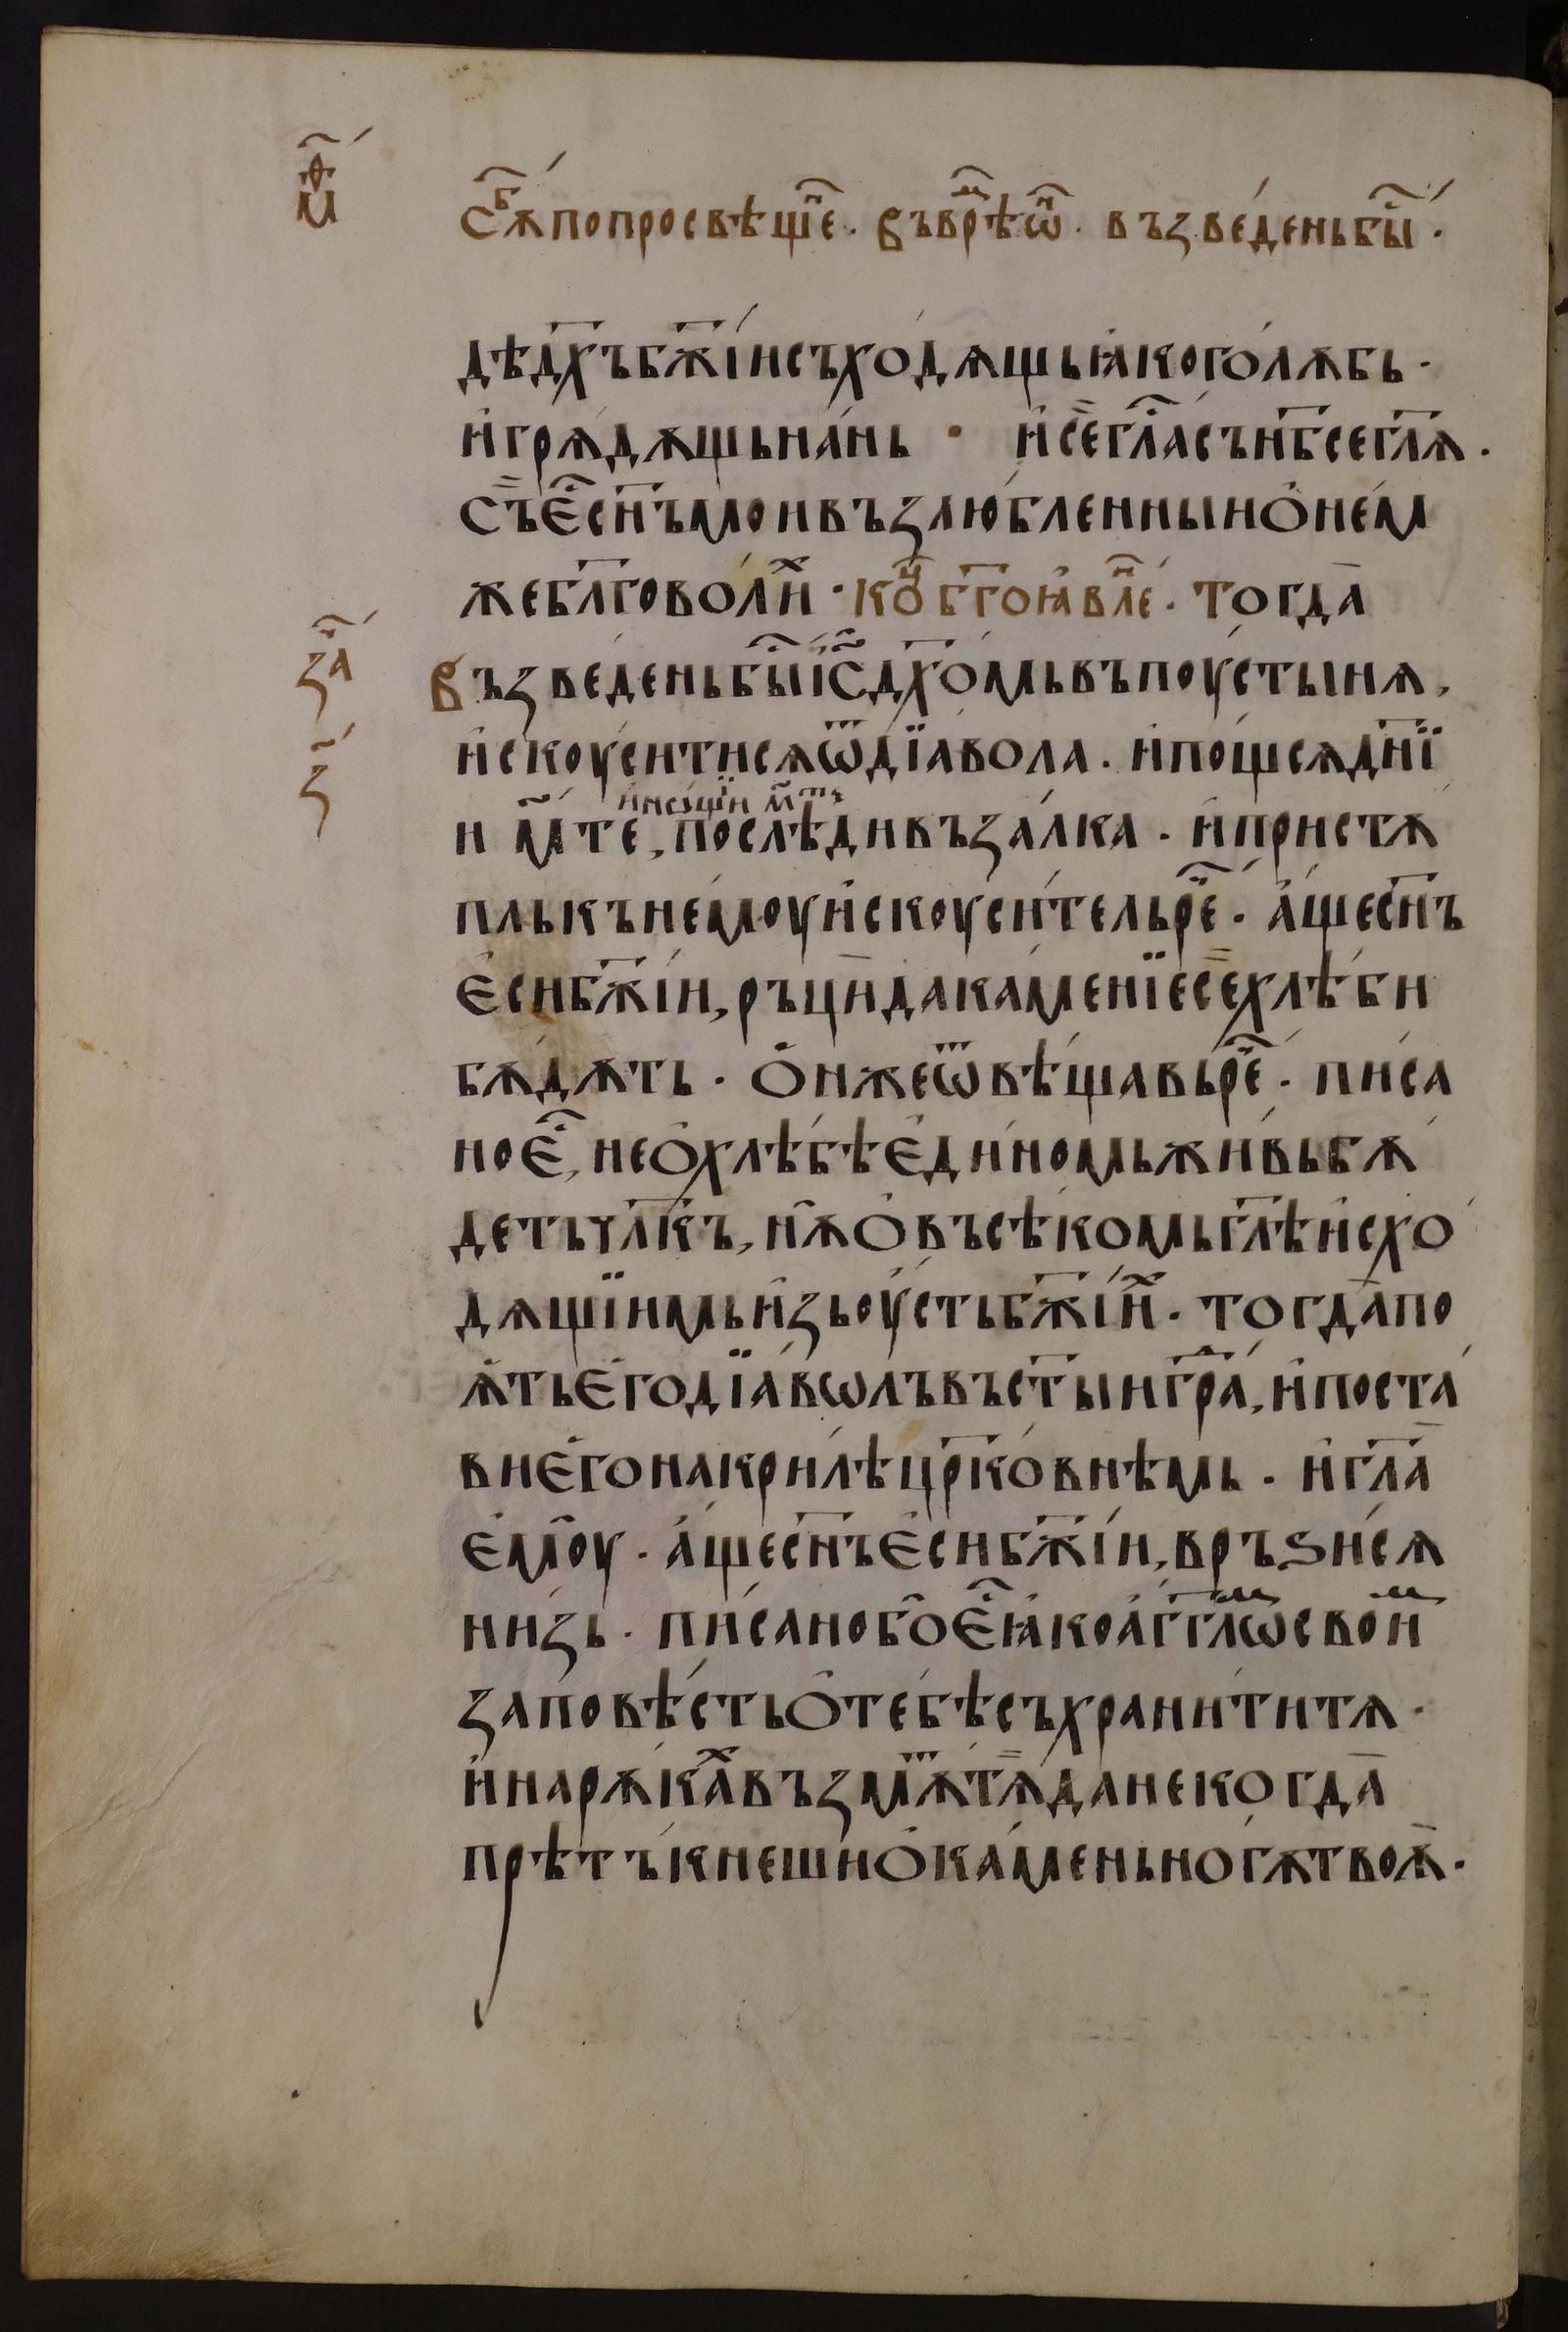 мⷴ҃
сѫⷠ҇ по просвѣщеⷩ҇і. Въ врⷨ҇ѣ ѡⷩ҇. възведень быⷭ҇.
дѣ дх҃ъ бж҃їи съходѧщь ꙗко голѫбь.
и грѧдѫщь нань · и се глаⷭ҇ съ нб҃се гл҃ѧ.
съ еⷭ҇ сн҃ъ мои възлюбленныи о нем
же бл҃говолиⷯ · коⷩ҇ б҃гоꙗвлеⷩ҇. Тогда
Възведень быⷭ҇ іс҃ дх҃омь въ поустынѧ,
искоуситисѧ ѿ дїавола. и пощьсѧ дн҃їи
и м҃ те, послѣди възалка. и пристѫ
нѡщїи м҃ть
пль къ немоу искоуситель реⷱ҇. аще сн҃ъ
еси бж҃їи, ръци да каменїе се хлѣби
бѫдѫть. Он же ѿвѣщавь реⷱ҇. писа
но еⷭ҇, не о хлѣбѣ единомь живь бѫ
деть чл҃къ, нѫ о въсѣкомь гл҃ѣ исхо
дѧщїимь изь оусть бж҃їиⷯ. тогда по
ѧть его дїавѡлъ въ ст҃ыи граⷣ, и поста
ви его на крилѣ црк҃овнѣмь. и гл҃а
емоу. аще сн҃ъ еси бж҃їи, връзисѧ
низь. писано бо еⷭ҇ ꙗко агг҃лѡⷨ своиⷨ
заповѣсть о тебѣ съхранити тѧ.
и на рѫкаⷯ възмѫⷮ тѧ да не когда
прѣтъкнеши о камень ногѫ твоѫ.
заⷱ҇
з҃